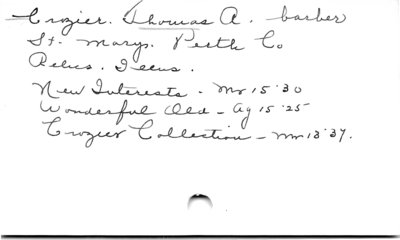 Crozier. Thomas A. barber
St. Marys. Perth Co
Relics. Teens.
New Interests - Mr 15 '30
Wonderful Old - Ag 15 '25
Crozier Collection - Mr 13 '37.